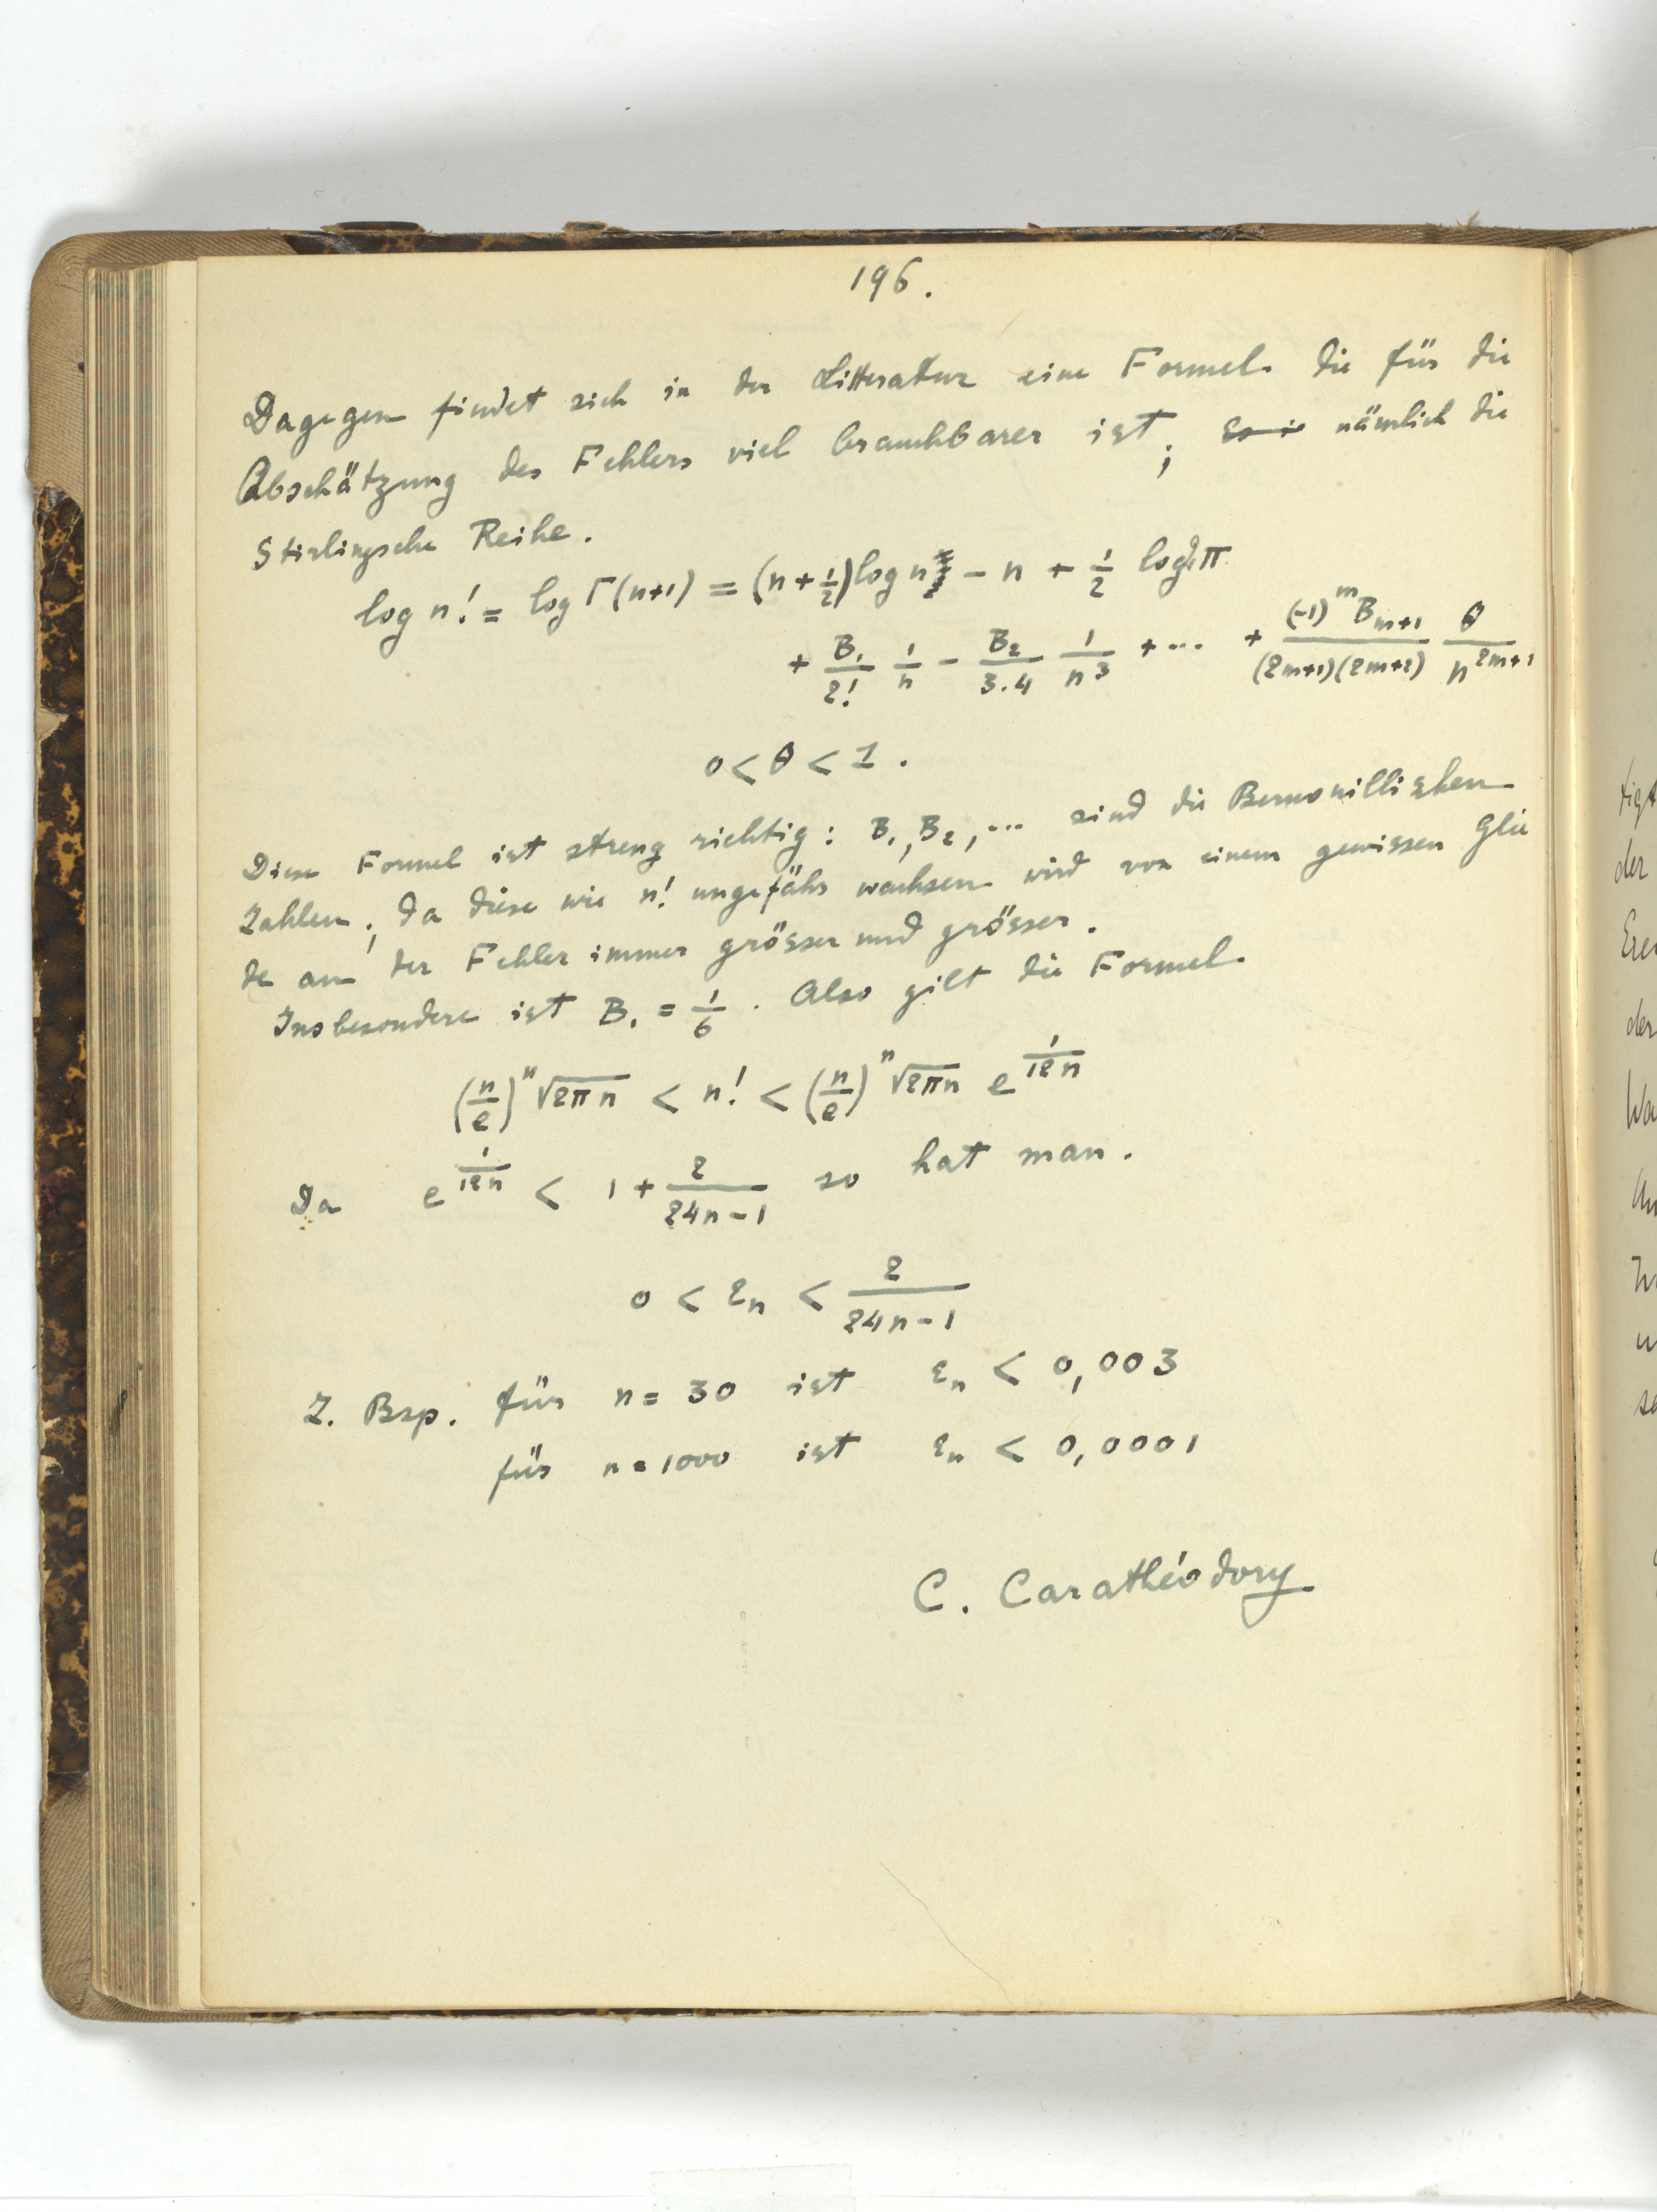 196.
Dagegen findet sich in der Litteratur eine Formel die für die
Abschätzung des Fehlers viel brauchbarer ist; nämlich die
Stirlingsche Reihe.
log n! = log Γ(n+1) = (n+1/2) log n − n + 1/2 log 2π
+ B₁/2! 1/n − B₂/3.4 1/n³ + ... + (-1)^m B_{m+1}/(2m+1)(2m+2) θ/n^{2m+1}
0 < θ < 1.
Diese Formel ist streng richtig: B₁, B₂, ... sind die Bernouillischen
Zahlen; da diese wie n! ungefähr wachsen wird von einem gewissen Glie
de an der Fehler immer grösser und grösser.
Insbesondere ist B₁ = 1/6. Also gilt die Formel
(n/e)^n √2πn < n! < (n/e)^n √2πn e^{1/12n}
Da e^{1/12n} < 1 + 2/24n−1 so hat man.
0 < εn < 2/24n−1
Z. Bsp. für n = 30 ist εn < 0,003
für n = 1000 ist εn < 0,0001
C. Carathéodory
der
der